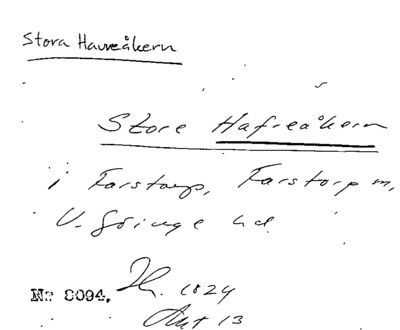 Stora Havreåkern
Store Hafreåkern
i Farstorp, Farstorp sn,
V. Göinge hd
Nr 8094. 1824
Akt 13